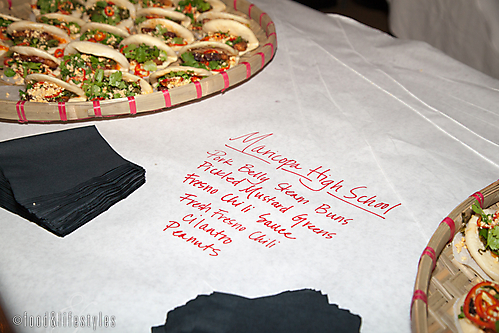 Maricopa High School
Pork Belly Steam Buns
Pickled Mustard Greens
Fresno Chili Sauce
Fresh Fresno Chili
Cilantro
Peanuts
©food&lifestyles